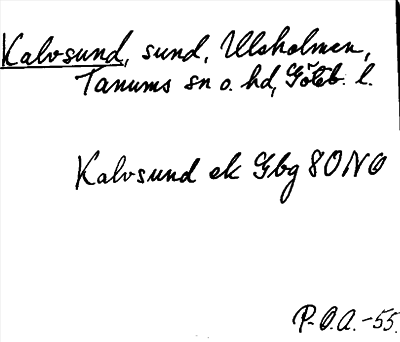 Kalvsund, sund, Ulsholmen,
Tanums sn o. hd, Göteb. l.
Kalvsund ek Gbg 80NO
P-O.A.-55.